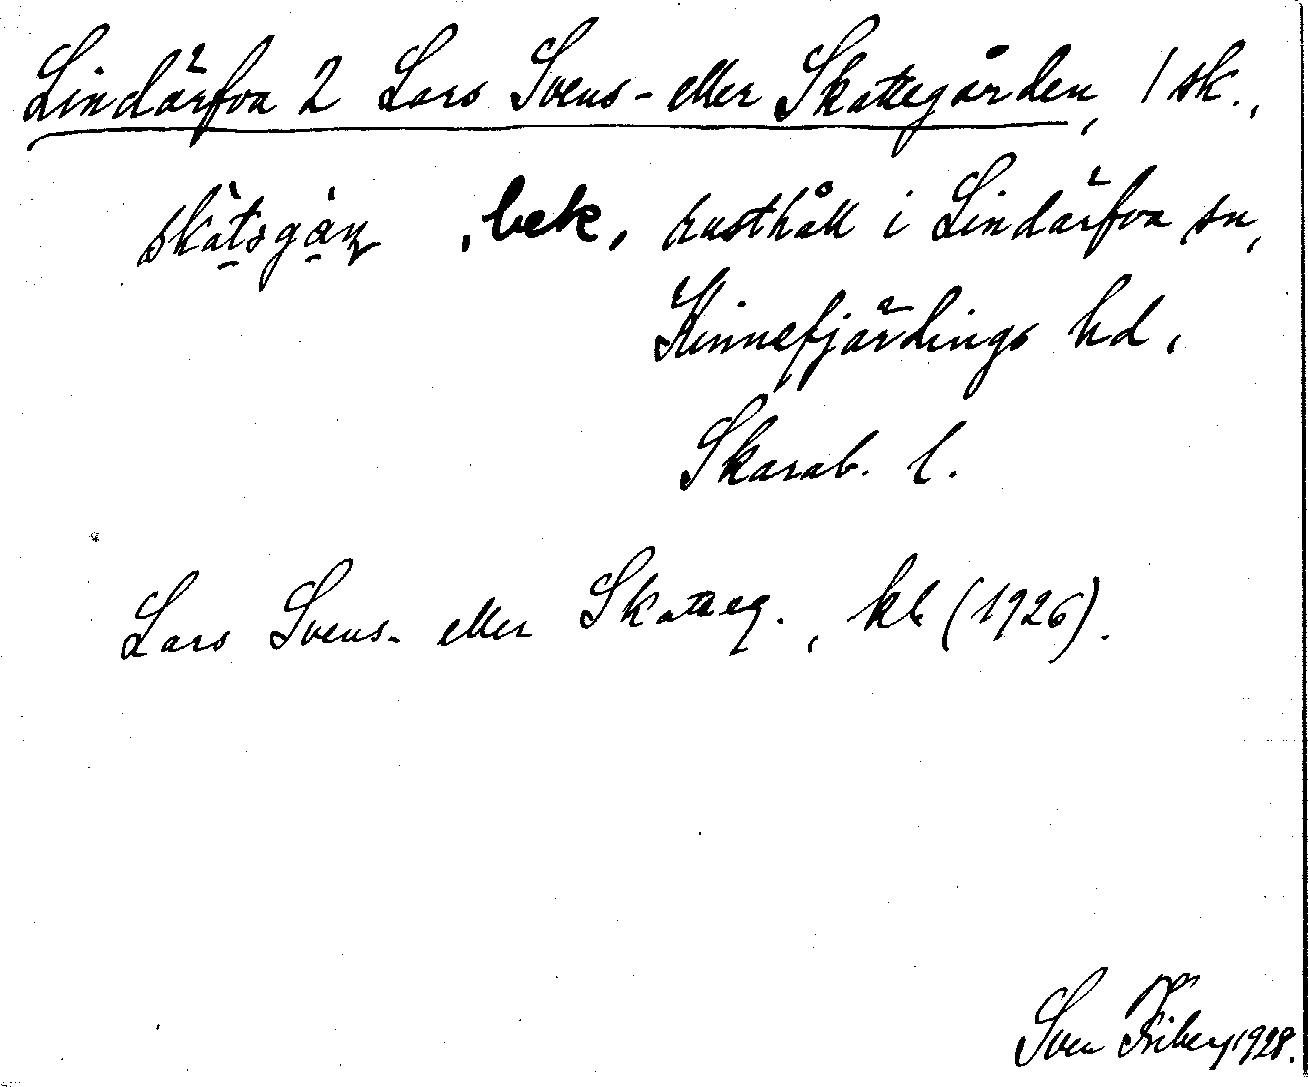 Lindärfva 2 Lars Svens- eller Skattegården, 1 sk.,
skàtsgàṇ, bek, rusthåll i Lindärfva sn,
Kinnefjärdings hd,
Skarab. l.
Lars Svens- eller Skatteg., kb (1926).
Sven Friberg 1928.